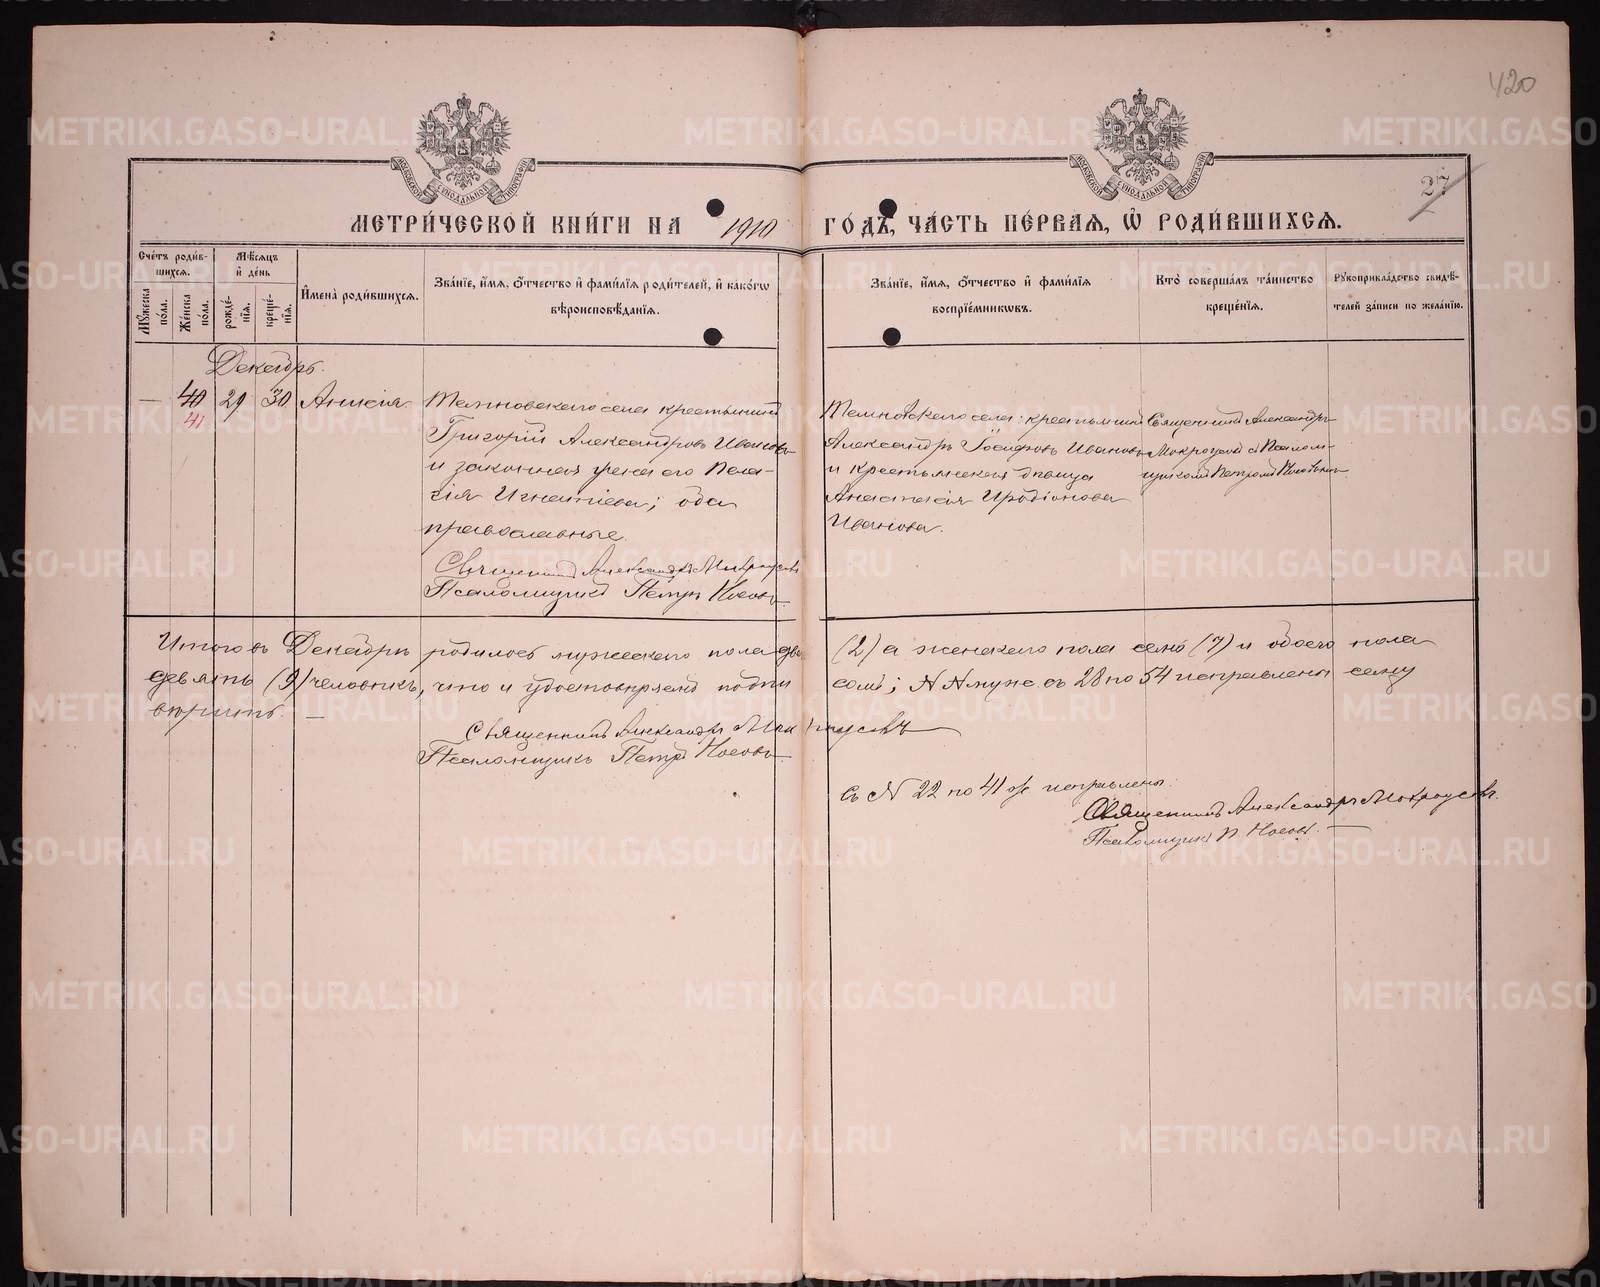 420
27
МЕТРИ́ЧЕСКОЙ КНИ́ГИ НА 1910 ГО́ДЪ, ЧА́СТЬ ПЕ́РВАЯ, Ѡ РОДИ́ВШИХСЯ.
Сче́тъ роди́вшихся.
Мѣ́сяцъ и де́нь
Му́жеска по́ла.
Же́нска по́ла.
рожде́нїя.
креще́нїя.
И҆мена̀ роди́вшихся.
Зва́нїе, и҆́мя, ѻ҆́тчество и҆ фами́лїя роди́телей, и҆ како́гѡ
вѣроисповѣ́данїя.
Зва́нїе, и҆́мя, ѻ҆́тчество и҆ фами́лїя
воспрїе́мникѡвъ.
Кто̀ соверша́лъ та́инство
креще́нїя.
Рꙋкоприкла́дство свидѣ́-
телей за́писи по жела́нїю.
Декабрь.
— 40 29 30 Анисія.
41
Темновскаго села крестьянинъ
Григорій Александровъ Ивановъ
и законная жена его Пела-
гія Игнатіева; оба
православные.
Священникъ Александръ Мокроусовъ
Псаломщикъ Петръ Носовъ
Темновскаго села: крестьянинъ
Александръ Іосифовъ Ивановъ
и крестьянская дѣвица
Анастасія Иродіонова
Иванова.
Священникъ Александръ
Мокроусовъ съ Псалом-
щикомъ Петромъ Носовымъ
Итого въ Декабрѣ родилось мужескаго пола два (2) а женскаго пола семь (7) и обоего пола
девять (9) человѣкъ, что и удостовѣряемъ подпи
сомъ; NN муж. съ 28 по 54 исправлены сему
вѣрить. —
Священникъ Александръ Мокроусовъ
Псаломщикъ Петръ Носовъ
Съ N 22 по 41 исправлены.
Священникъ Александръ Мокроусовъ.
Псаломщикъ П. Носовъ.